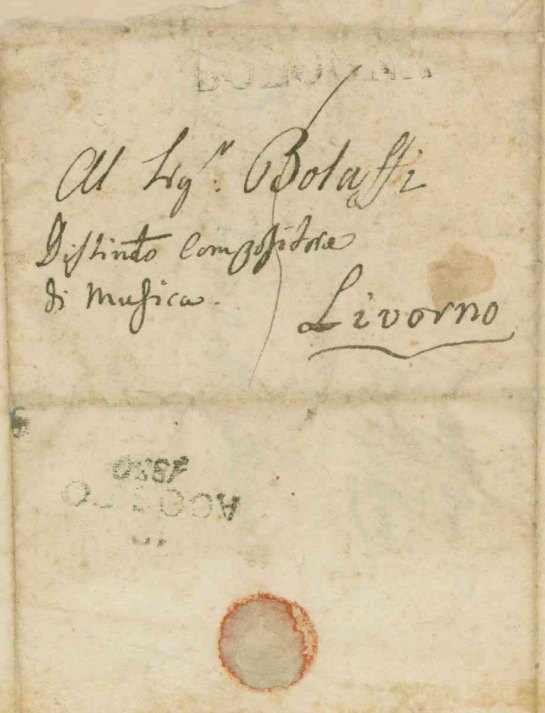 BOLOGNA
Al Sig.r Bolaffi
Distinto Compositore
di Musica.
Livorno
AGOSTO